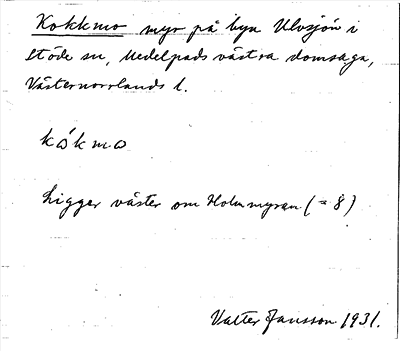 Kokkmo myr på byn Ulvsjön i
Stöde sn, Medelpads västra domsaga,
Västernorrlands l.
kɷ́kmɷ
Ligger väster om Holmmyran (= 8)
Valter Jansson 1931.